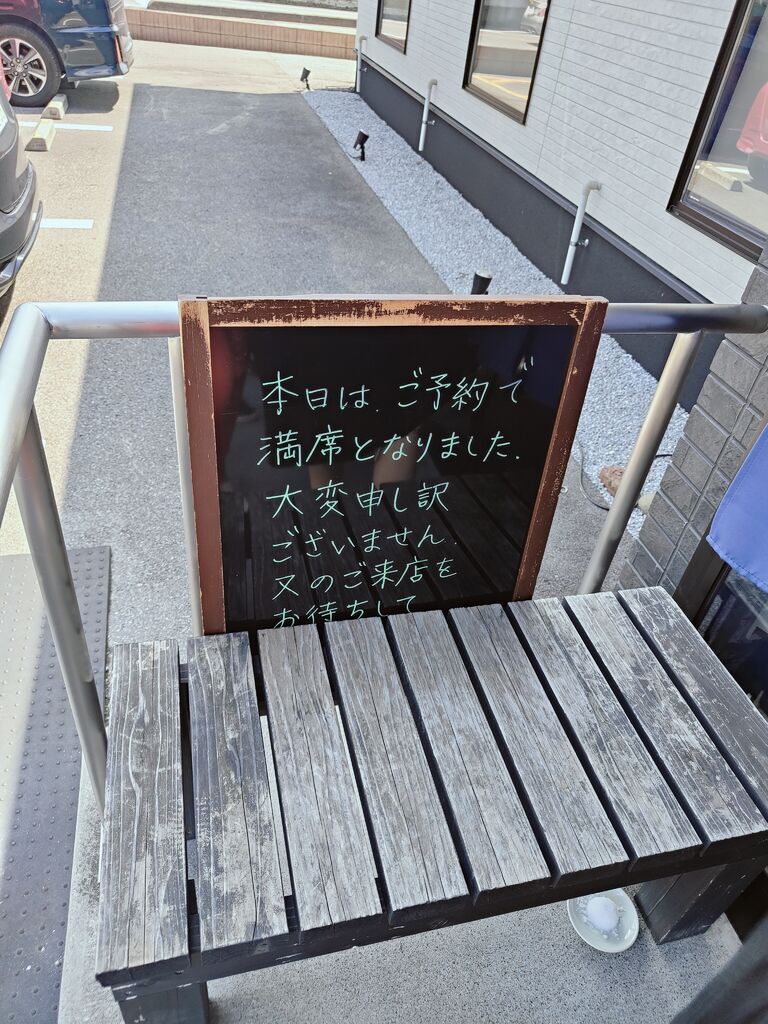 本日は、ご予約で
満席となりました。
大変申し訳
ございません。
又のご来店を
お待ちして